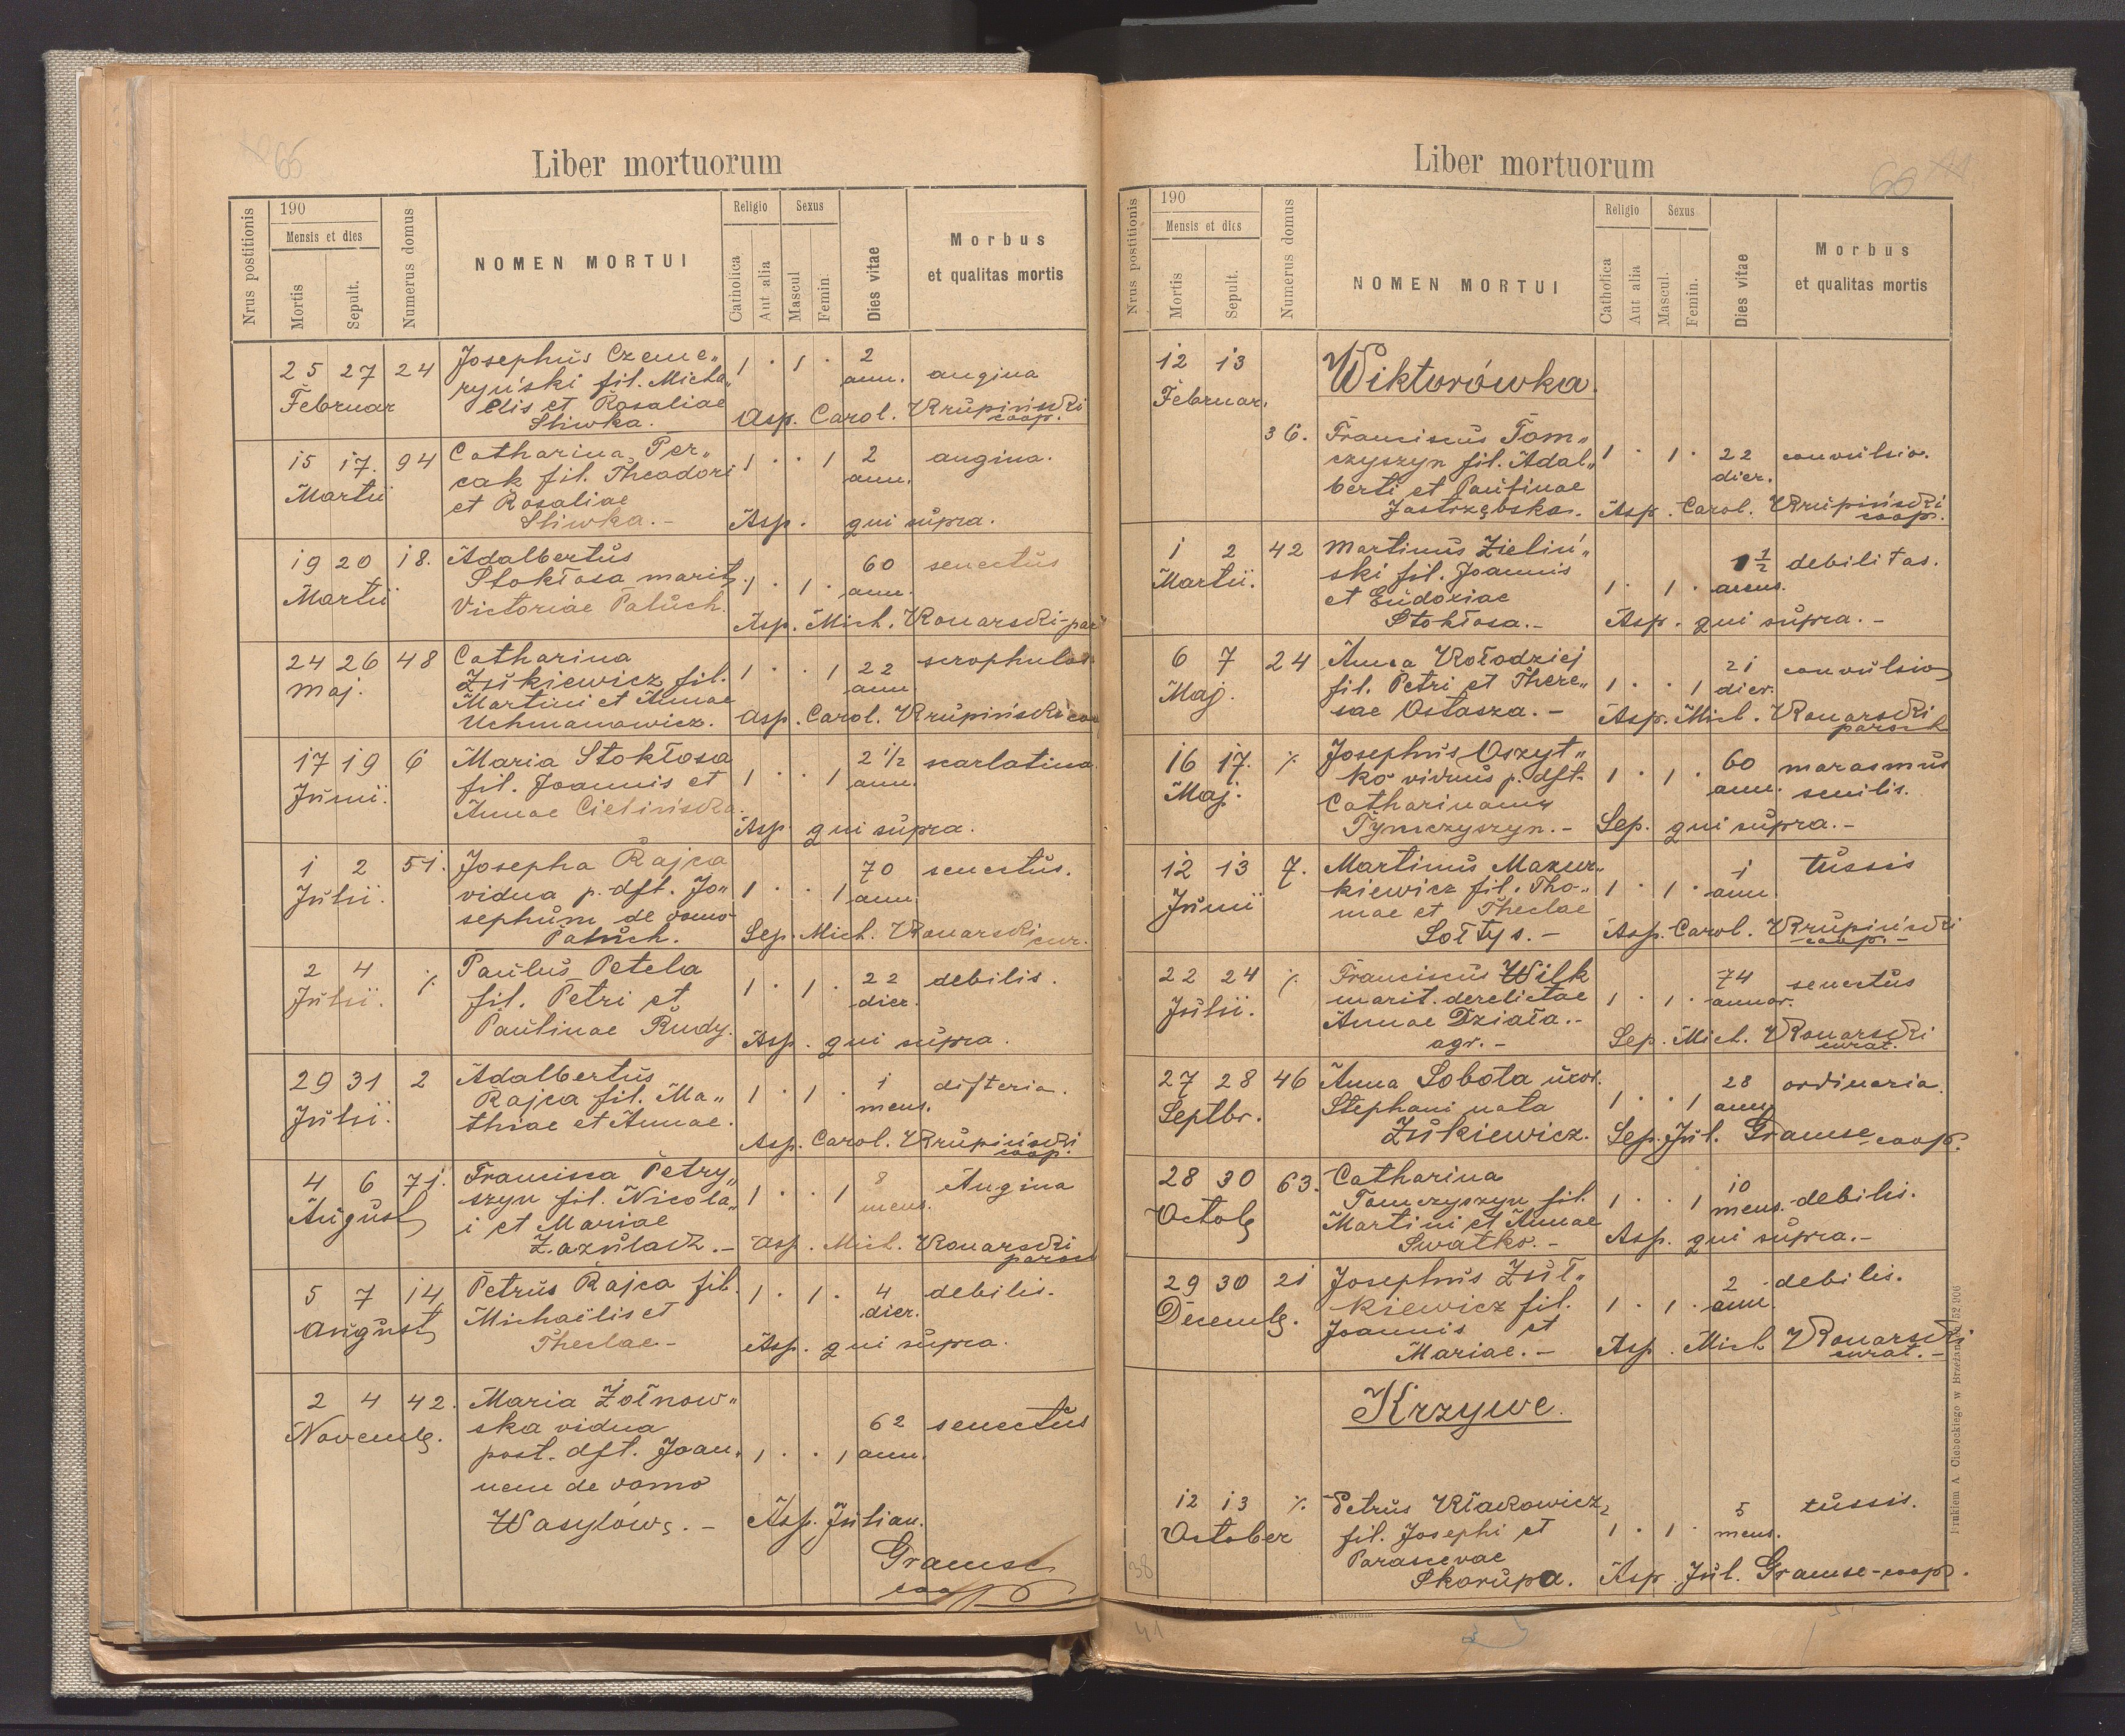 65
Liber mortuorum
Nrus postitionis
190
Mensis et dies
Mortis
Sepult.
Numerus domus
NOMEN MORTUI
Religio
Catholica
Aut alia
Sexus
Mascul
Femin.
Dies vitae
Morbus
et qualitas mortis
25 27 24 Josephus Czeme„ 1 · 1 · 2
ryński fil. Micha„ ann. angina
Februar elis et Rosaliae
Sliwka. Asp. Carol. Krupiński
coop.
15 17. 94 Catharina Per„ 1 · · 1 2 angina.
cak fil. Theodori ann.
Martii et Rosaliae
Sliwka. – Asp. qui supra.
19 20 18. Adalbertus 60 senectus
Stokłosa marit. 1 · 1 · ann.
Martii Victoriae Paluch.
Asp. Mich. Konarski-par
24 26 48 Catharina 1 · · 1 22 scrophulos
Maj. Żukiewicz fil. ann.
Martini et Annae
Uchmanowicz. Asp. Carol. Krupiński coo
17 19 6 Maria Stokłosa 2 1/2 scarlatina
fil. Joannis et 1 · · 1 ann.
Junii. Annae Cielińska.
Asp. qui supra.
1 2 51. Josepha Rajca 70 senectus.
Julii. vidua p. dft. Jo„ 1 · · 1 ann.
sephum de domo
Paluch. Sep. Mich. Konarski cur.
2 4 ٪ Paulus Petela 22 debilis.
Julii. fil. Petri et 1 · 1 · dier.
Paulinae Rudy. Asp. qui supra.
29 31 2 Adalbertus 1 · 1 · 1 difteria.
Rajca fil. Ma„ mens.
Julii. thiae et Annae.
Asp. Carol. Krupiński
coop.
4 6 71. Francisca Petry„ 8 Angina
szyn fil. Nicola„ 1 · · 1 mens.
August i et Mariae
Zazulack. – Asp. Mich. Konarski
paroch
5 7 14 Petrus Rajca fil. 1 · 1 · 4 debilis.
August Michaëlis et dier.
Theclae – Asp. qui supra.
2 4 42. Maria Żołnow„
Novemb. ska vidua 62 senectus
post. dft. Joan„ 1 · · 1 ann.
nem de domo
Wasylów. – Asp. Julian.
Gramse
coop
66
Liber mortuorum
Nrus postitionis
190
Mensis et dies
Mortis
Sepult.
Numerus domus
NOMEN MORTUI
Religio
Catholica
Aut alia
Sexus
Mascul.
Femin.
Dies vitae
Morbus
et qualitas mortis
12 13 Wiktorówka.
Februar.
36. Franciscus Tom„
czyszyn fil. Adal„ 1 · 1 · 22 convulsio.
berti et Paulinae dier.
Jastrzębska. Asp. Carol. Krupiński
coop.
1 2 42 Martinus Zieliń„ 1 1/2 debilitas.
Martii. ski fil. Joannis
et Eudoxiae 1 · 1 · mens.
Stokłosa. – Asp. qui supra. –
6 7 24 Anna Kołodziej 21 convulsio
Maj. fil. Petri et There„ 1 · · 1 dier.
sae Ostasza. – Asp. Mich. Konarski
paroch
16 17. ٪ Josephus Oszyt„ 60 marasmus
Maj. ko viduus p. dft. 1 · 1 · ann. senilis.
Catharinam
Tymczyszyn. – Sep. qui supra. –
12 13 7. Martinus Mazur„ 1 tussis
kiewicz fil. Tho„ 1 · 1 · ann.
Junii mae et Theclae
Sołtys. – Asp. Carol. Krupiński
coop. –
22 24 ٪ Franciscus Wilk 74 senectus
Julii. marit. derelictae 1 · 1 · annor.
Annae Działa. –
agr. – Sep. Mich. Konarski
curat.
27 28 46 Anna Sobota uxor. 28 ordinaria.
Septbr. Stephani nata 1 · · 1 ann.
Żukiewicz. Sep. Jul. Gramse-coop.
28 30 63. Catharina 10
Octob Tomczyszyn fil. 1 · · 1 mens. debilis.
Martini et Annae
Swatko. – Asp. qui supra. –
29 30 21 Josephus Żuł„ 2 debilis.
Decemb. kiewicz fil. 1 · 1 · ann.
Joannis et
Mariae. – Asp. Mich Konarski
curat. –
Krzywe.
12 13 ٪ Petrus Kłakowicz 5 tussis.
October fil. Josephi et 1 · 1 · mens.
Parascevae
Skorupa. Asp. Jul. Gramse-coop.
38
41
Drukiem A
w Brzeżanach